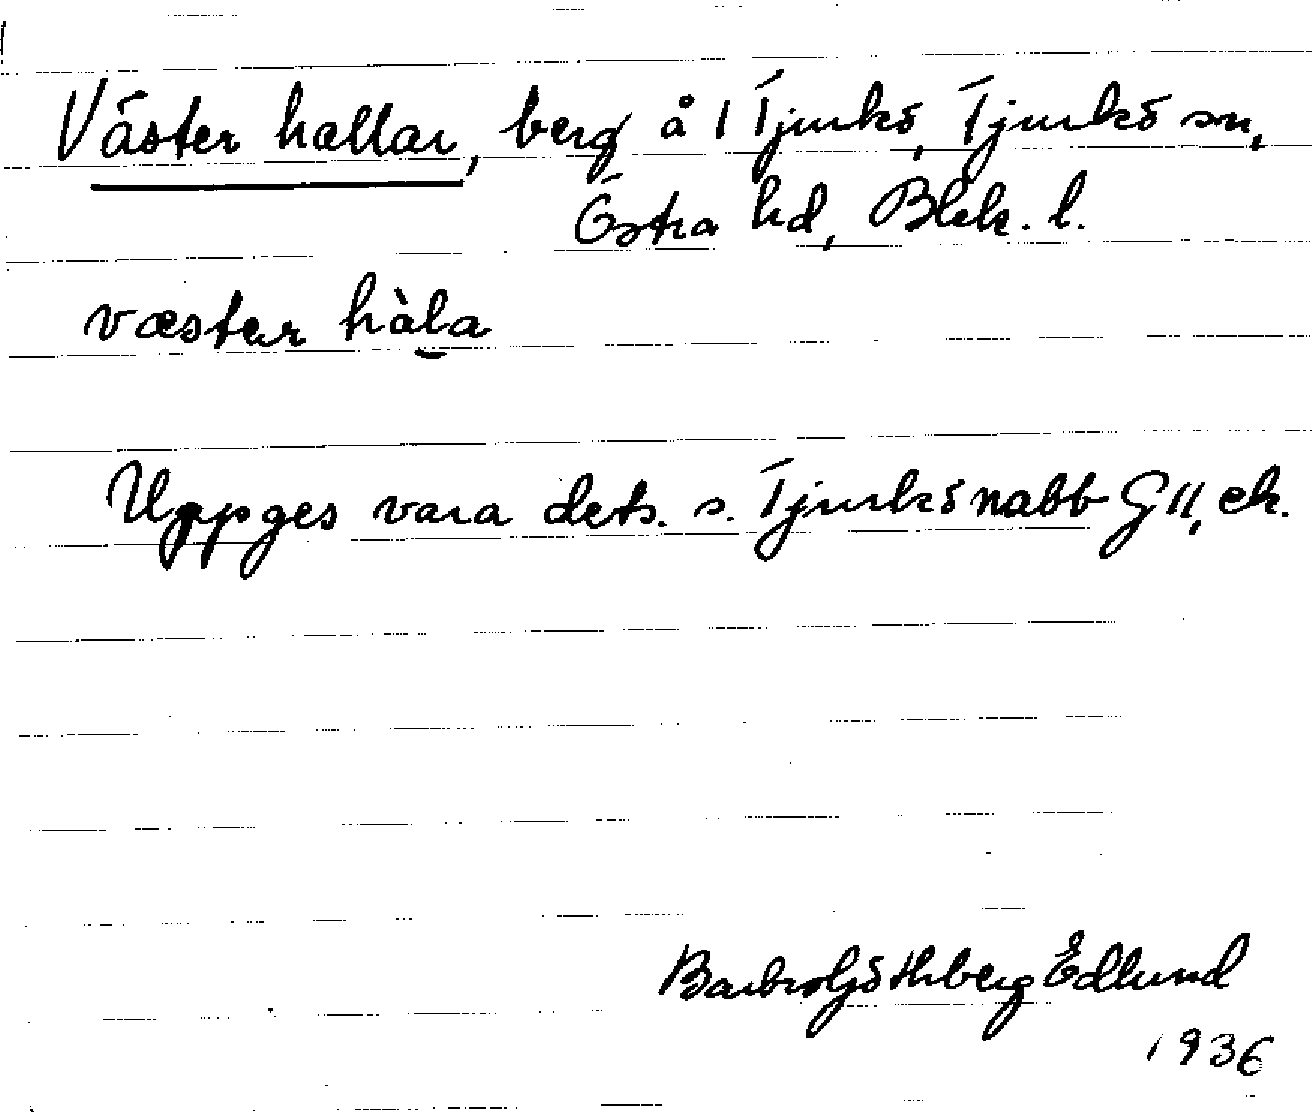 Väster hallar, berg å 1 Tjurkö, Tjurkö sn,
Östra hd, Blek. l.
væstər hàl̠a
Uppges vara dets. s. Tjurkö nabb G 11, ek.
Barbro Götherg Edlund
1936